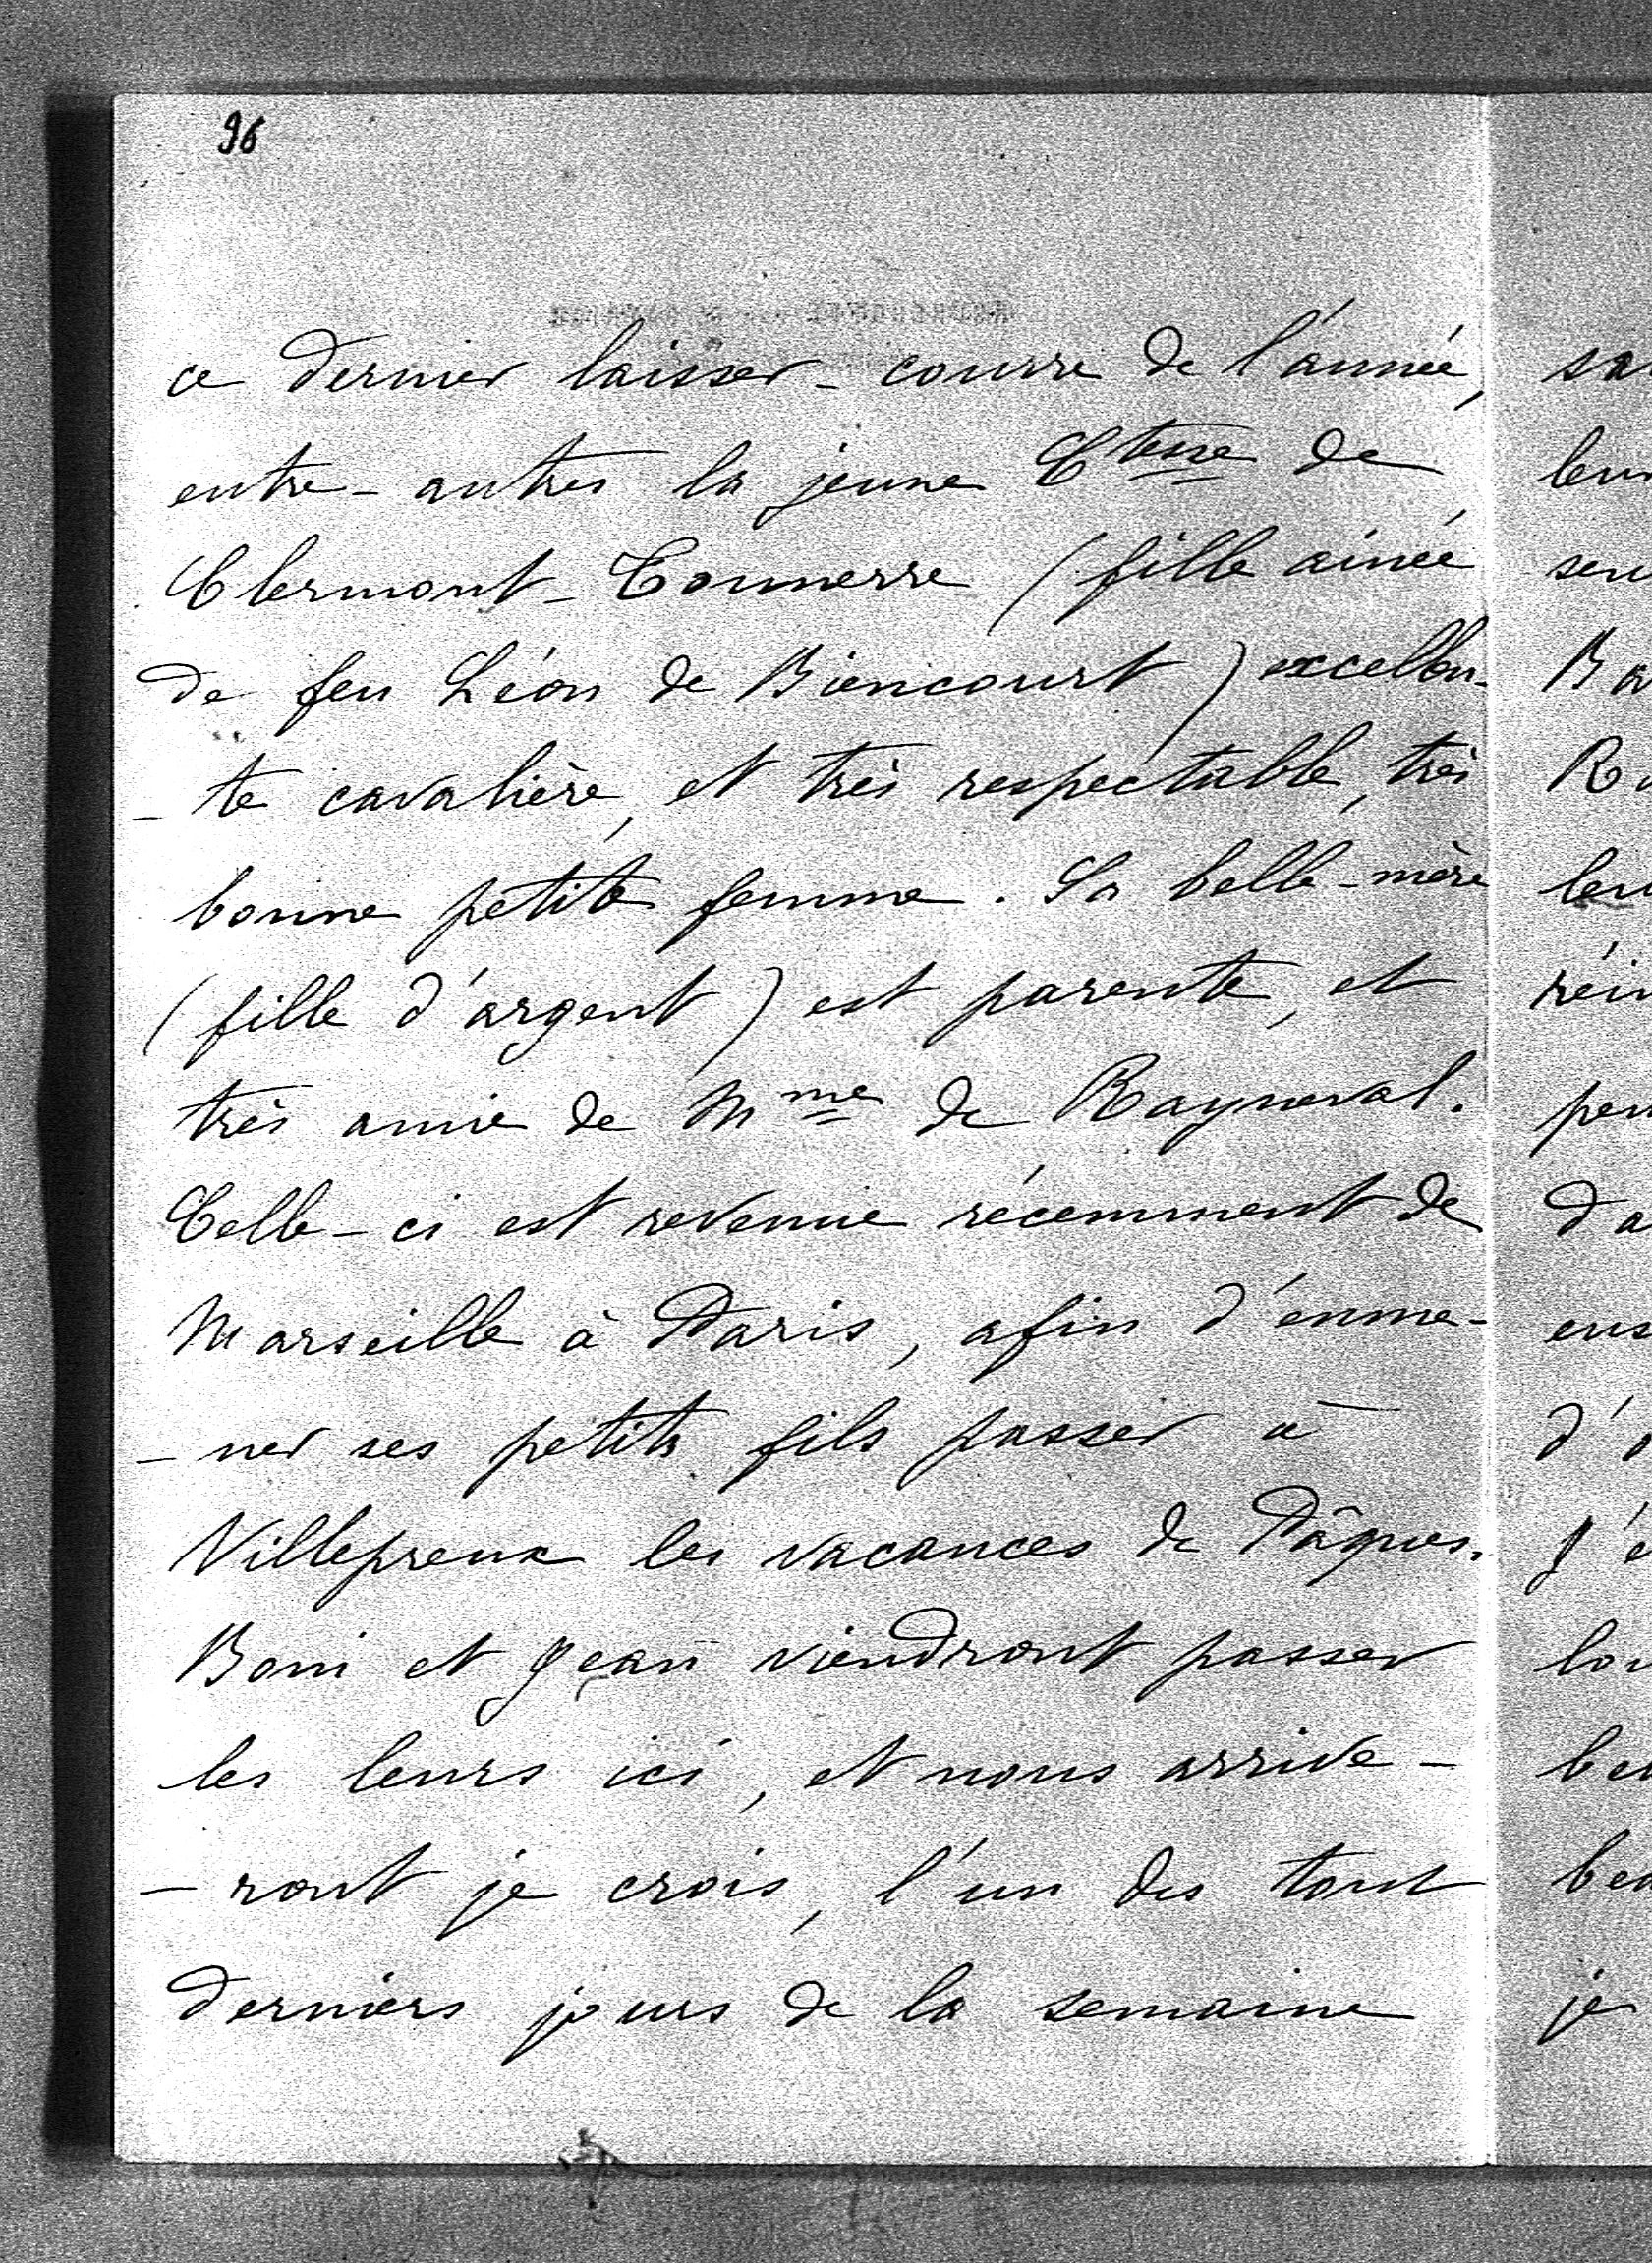 96
ce dernier laisser-courre de l'année,
entre-autres la jeune Ctesse de
Clermont-Tonnerre (fille ainée
de feu Léon de Biencourt) excellen-
- te cavalière, et très respectable, très
bonne petite femme. Sa belle-mère
(fille d'argent) est parente, et
très amie de Mme de Rayneval.
Celle-ci est revenue récemment de
Marseille à Paris, afin d'emme-
- ner ses petits fils passer à
Villepreux les vacances de Pâques.
Boni et Jean viendront passer
les leurs ici, et nous arrive-
- ront je crois, l'un des tout
derniers jours de la semaine